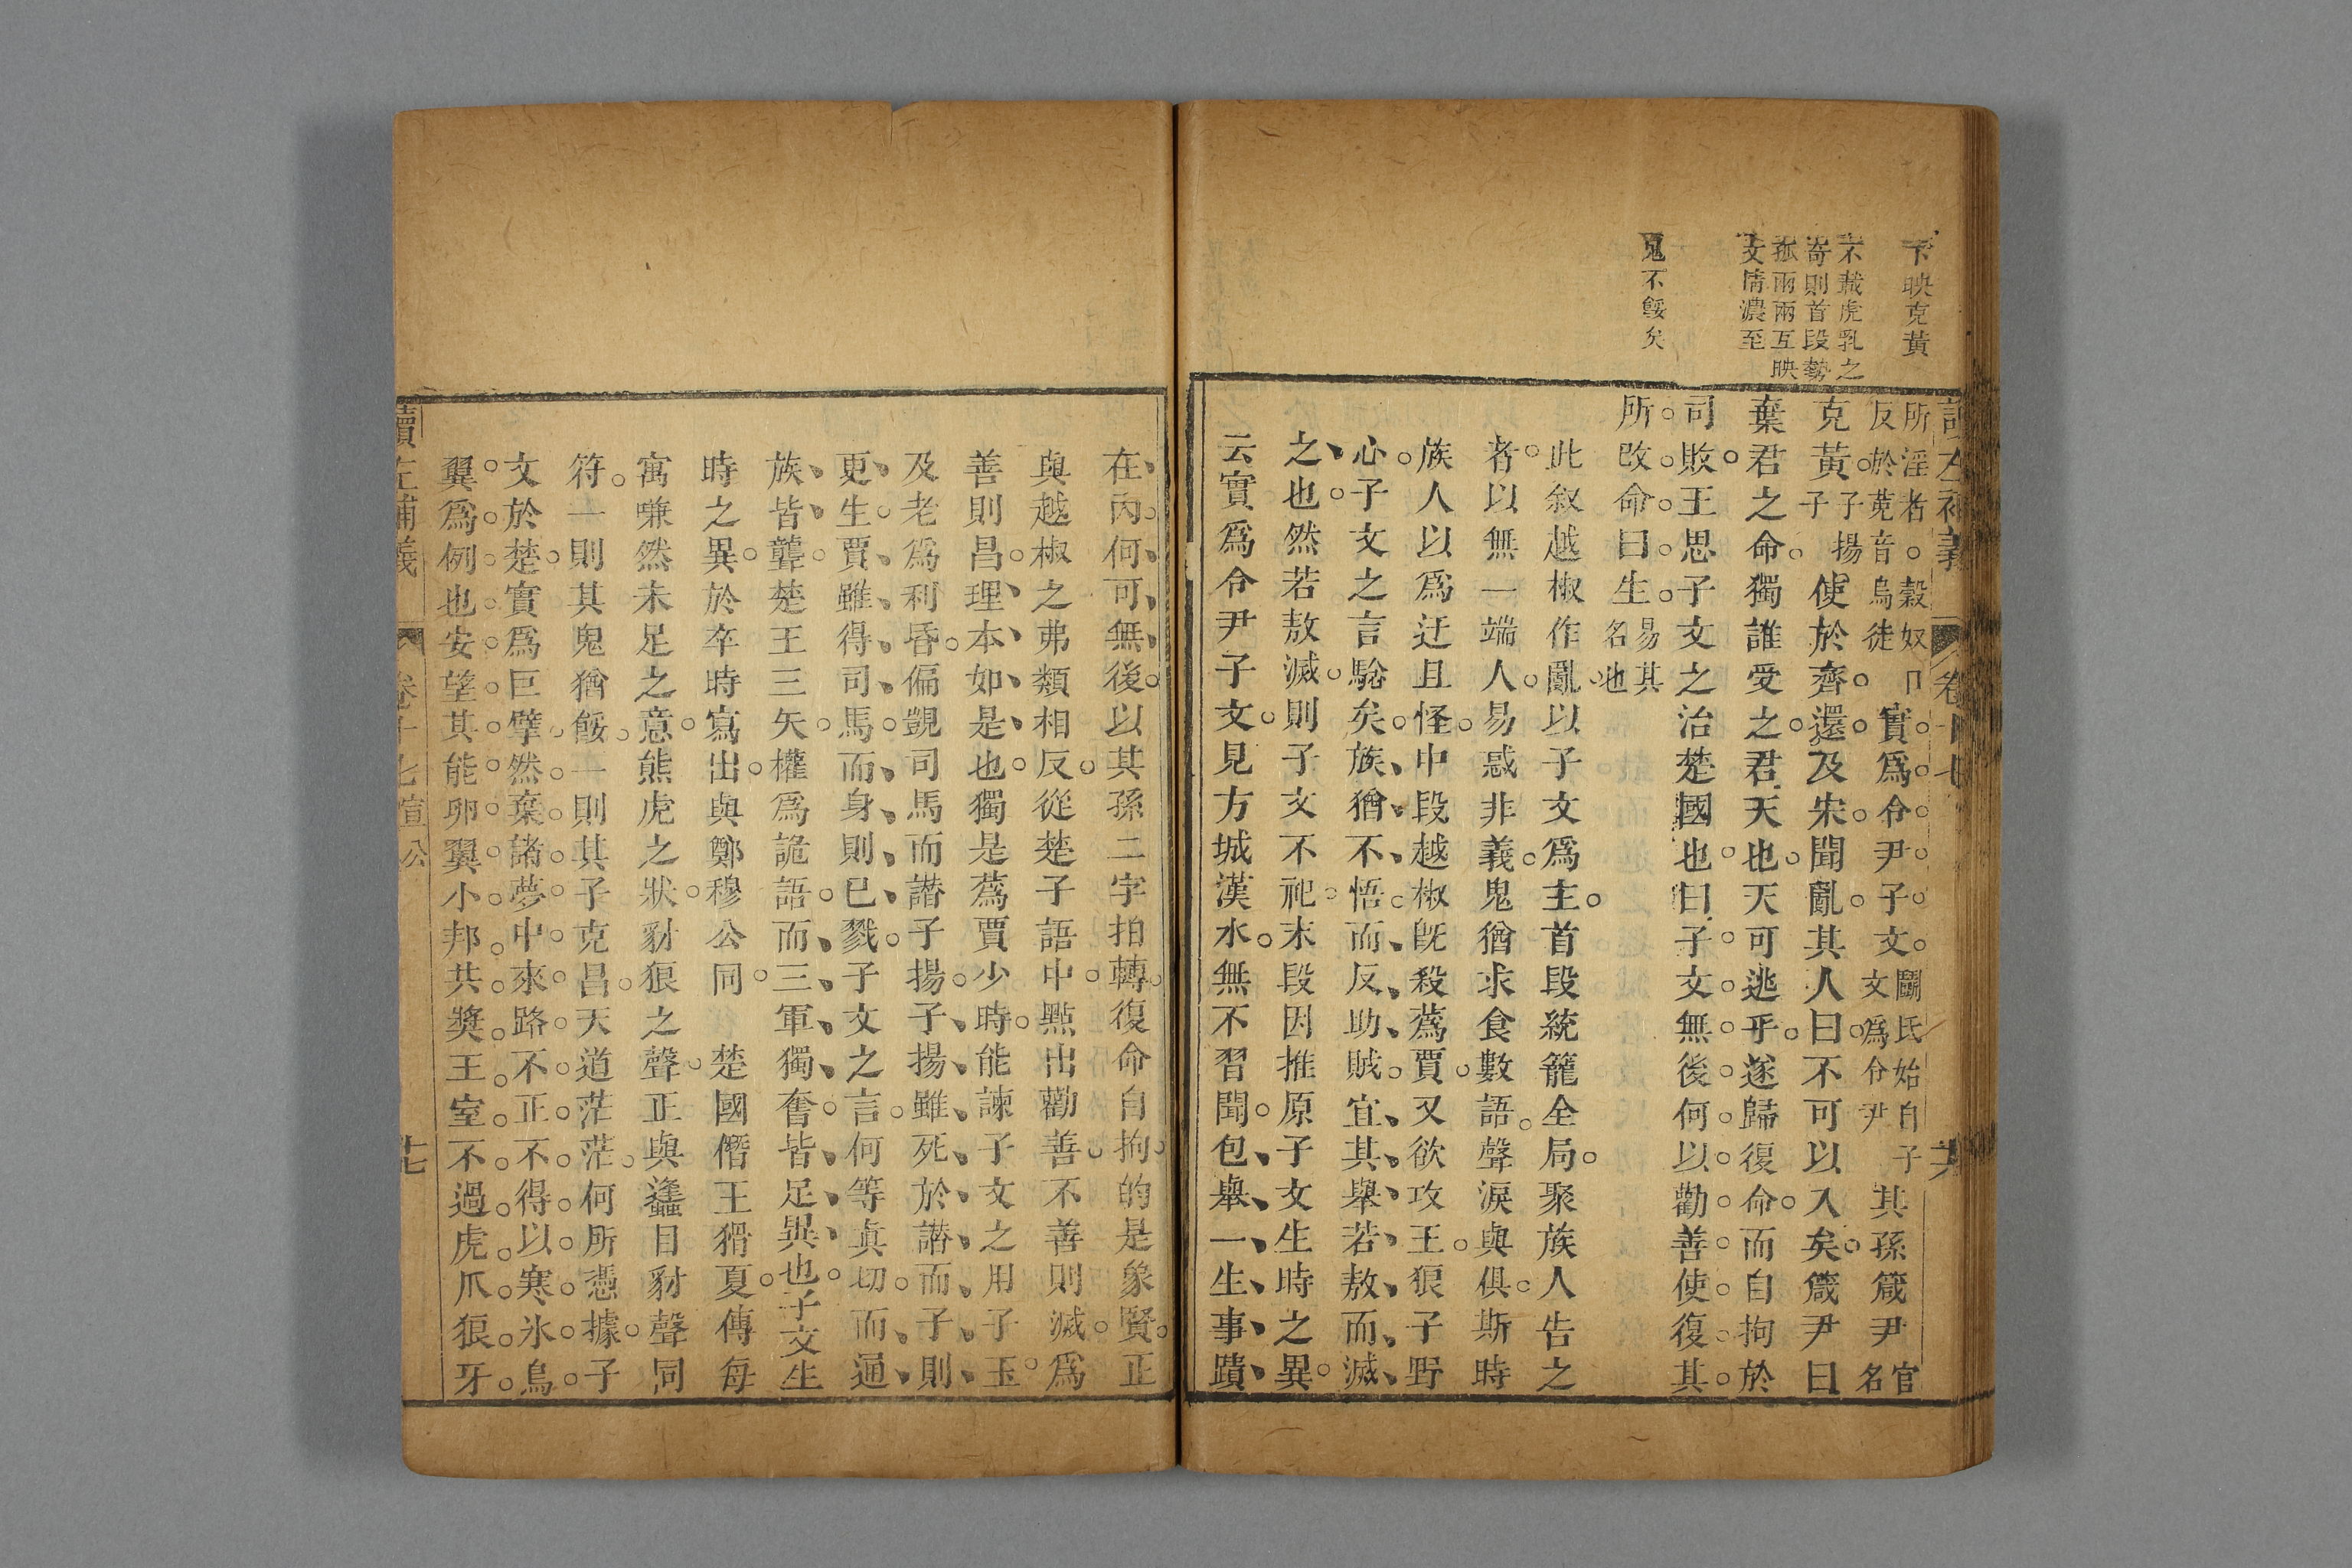 下映克黃
不載虎乳之
奇則首段勢
孤兩兩互映
文情濃至
鬼不餒矣
讀左補義 卷十七 十六
所淫者。穀奴口
反於菟音烏徒
實爲令尹子文鬬氏始自子文爲令尹其孫箴尹官名
克黃子揚子使於齊還及宋聞亂其人曰不可以入矣箴尹曰
棄君之命獨誰受之君天也天可逃乎遂歸復命而自拘於
司敗王思子文之治楚國也曰子文無後何以勸善使復其
所改命曰生易其名也
此叙越椒作亂以子文爲主首段統籠全局聚族人告之
者以無一端人易惑非義鬼猶求食數語聲淚與俱斯時
族人以爲迂且怪中段越椒旣殺蔿賈又欲攻王狼子野
心子文之言騐矣族猶不悟而反助賊宜其舉若敖而滅
之也然若敖滅則子文不祀末段因推原子文生時之異
云實爲令尹子文見方城漢水無不習聞包舉一生事蹟
在內何可無後以其孫二字拍轉復命自拘的是象賢正
與越椒之弗類相反從楚子語中點出勸善不善則滅爲
善則昌理本如是也獨是蔿賈少時能諫子文之用子玉
及老爲利昏偏覬司馬而譖子揚子揚雖死於譖而子則
更生賈雖得司馬而身則已戮子文之言何等眞切而通
族皆聾楚王三矢權爲詭語而三軍獨奮皆足異也子文生
時之異於卒時寫出與鄭穆公同 楚國僭王猾夏傳每
寓嗛然未足之意熊虎之狀豺狼之聲正與蠭目豺聲同
符一則其鬼猶餒一則其子克昌天道茫茫何所憑據子
文於楚實爲巨擘然棄諸夢中來路不正不得以寒氷鳥
翼爲例也安望其能卵翼小邦共奬王室不過虎爪狼牙
讀左補義 卷十七宣公 十七